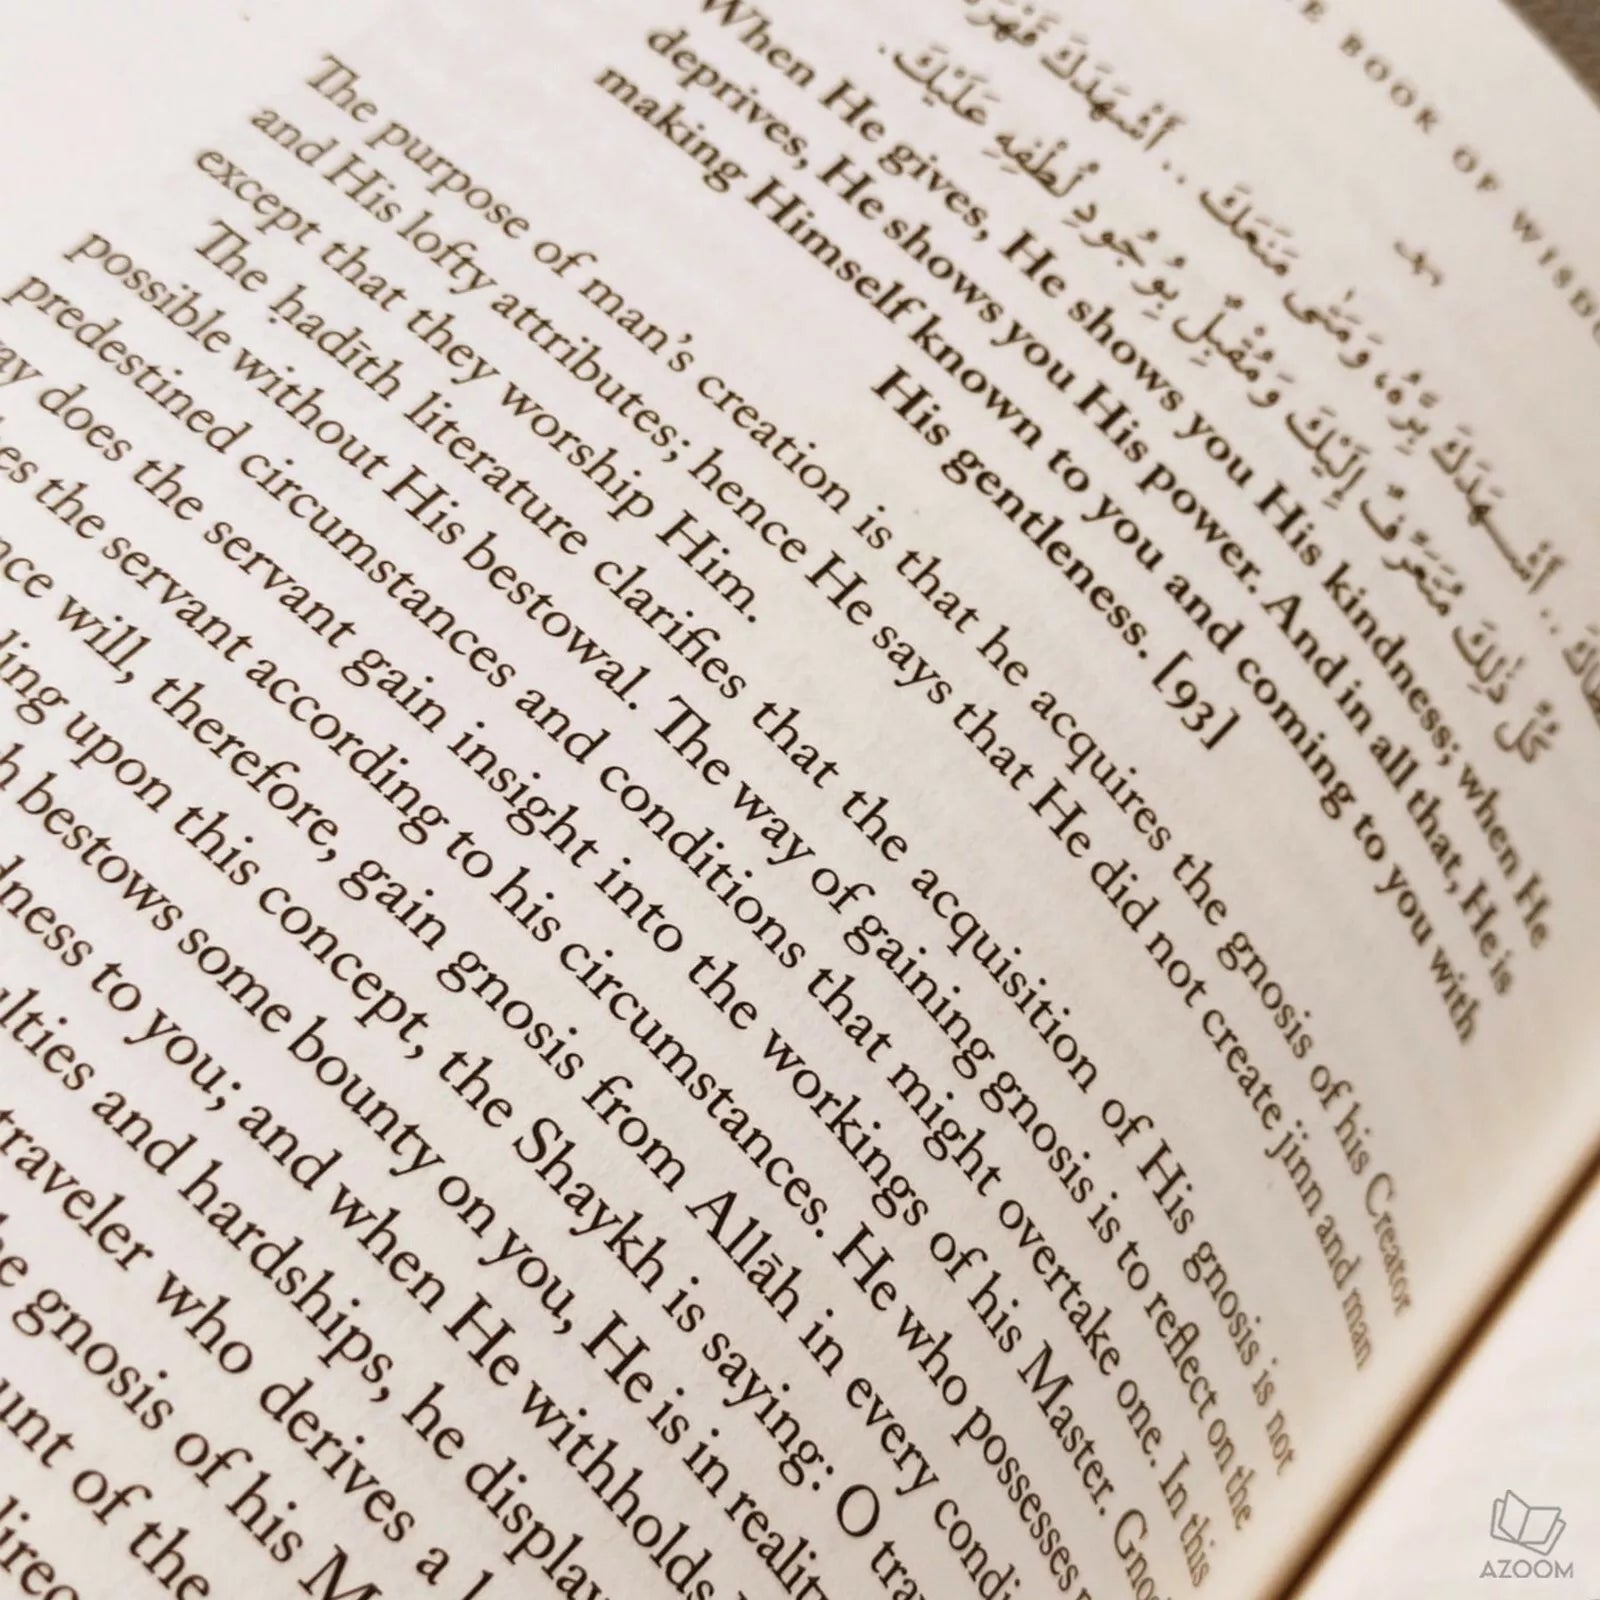 THE BOOK OF WISDO
أَشْهَدَكَ بِرَّهُ، وَمَتَىٰ مَنَعَكَ .. أَشْهَدَكَ قَهْرَهُ
كُلِّ ذَٰلِكَ مُتَعَرِّفٌ إِلَيْكَ وَمُقْبِلٌ بِوُجُودِ لُطْفِهِ عَلَيْكَ.
When He gives, He shows you His kindness; when He
deprives, He shows you His power. And in all that, He is
making Himself known to you and coming to you with
His gentleness. [93]
The purpose of man's creation is that he acquires the gnosis of his Creator
and His lofty attributes; hence He says that He did not create jinn and man
except that they worship Him.
The ḥadīth literature clarifies that the acquisition of His gnosis is not
possible without His bestowal. The way of gaining gnosis is to reflect on the
predestined circumstances and conditions that might overtake one. In this
does the servant gain insight into the workings of his Master. Gno
the servant according to his circumstances. He who possesses
will, therefore, gain gnosis from Allāh in every condi
upon this concept, the Shaykh is saying: O tra
bestows some bounty on you, He is in reality
to you; and when He withholds
and hardships, he display
traveler who derives a
gnosis of his M
of the